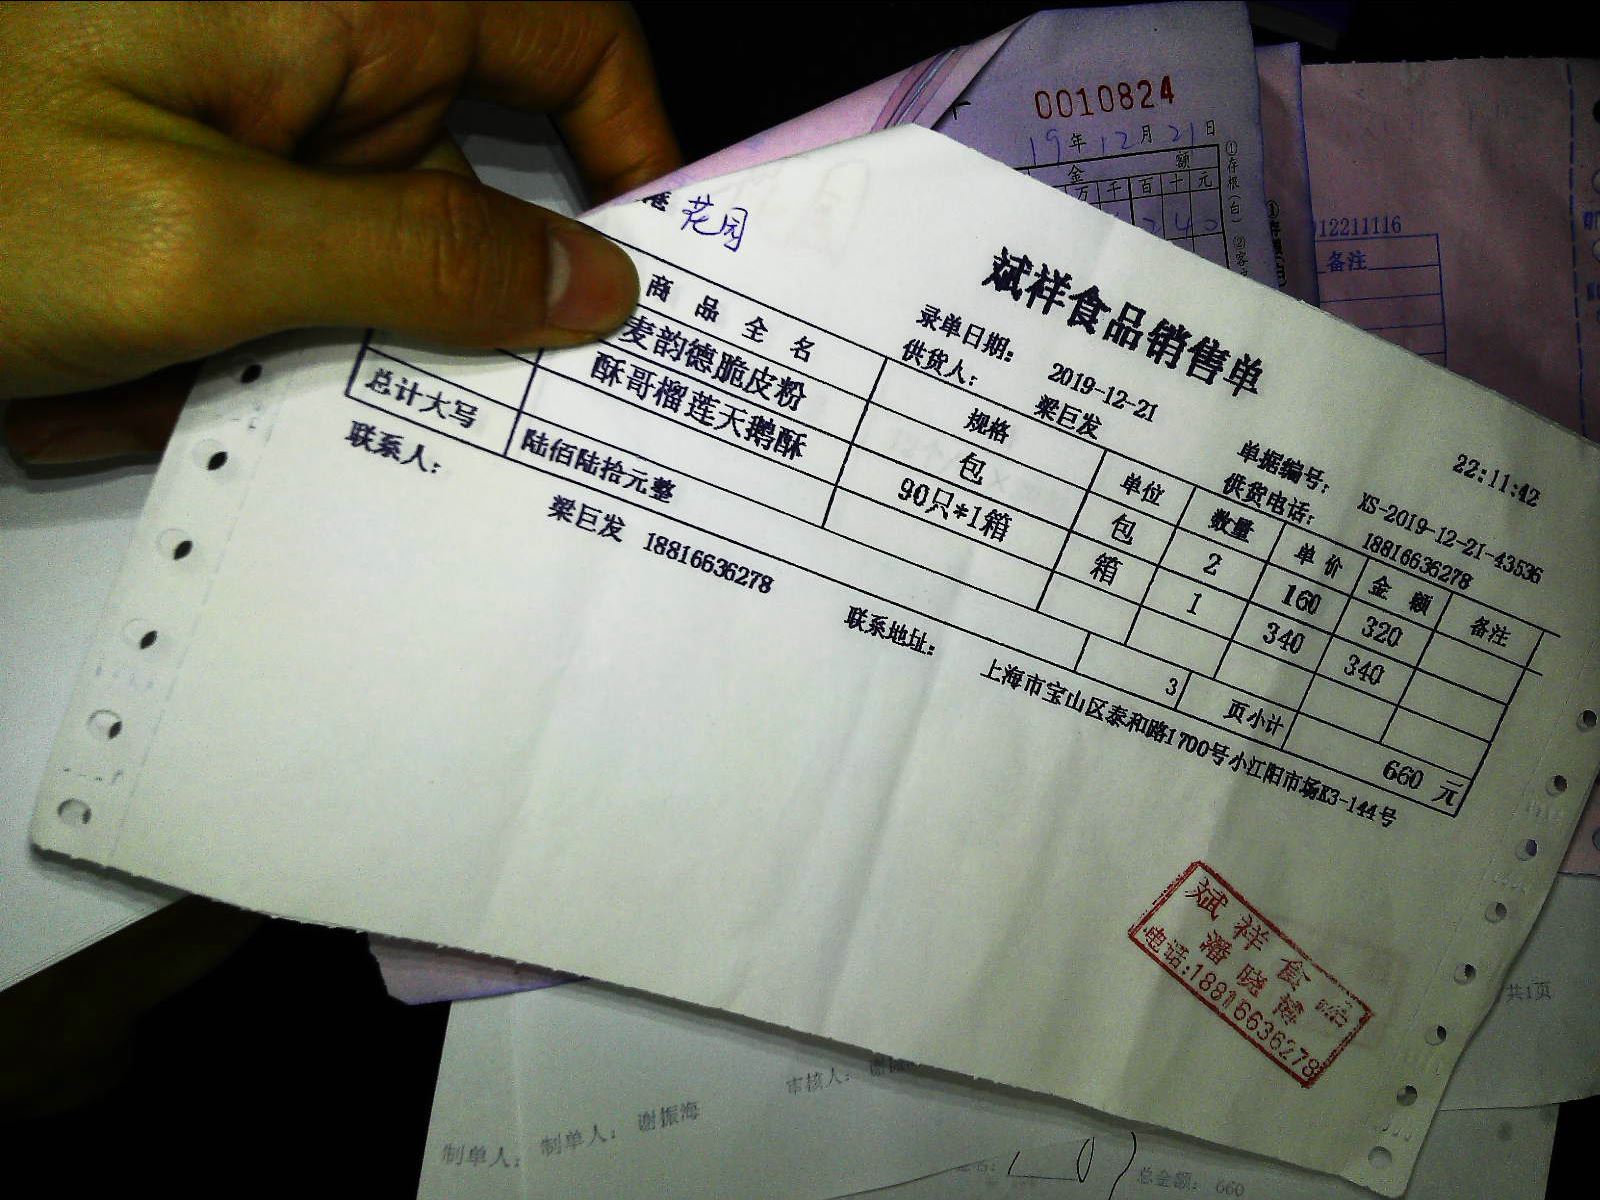 0010824
19年12月21日
金额
万千百十元
240
①存根(白)
12211116
备注
花园
斌祥食品销售单
录单日期: 2019-12-21 22:11:42
供货人: 梁巨发
单据编号: XS-2019-12-21-43536
供货电话: 18816636278
商品全名 规格 单位 数量 单价 金额 备注
麦韵德脆皮粉 包 包 2 160 320
酥哥榴莲天鹅酥 90只*1箱 箱 1 340 340
3
总计大写 陆佰陆拾元整 页小计 660 元
联系人: 梁巨发 18816636278
联系地址: 上海市宝山区泰和路1700号小江阳市场K3-144号
斌祥食品
潘晓
电话:18816636278
共1页
审核人:
制单人: 制单人: 谢振海
总金额: 660